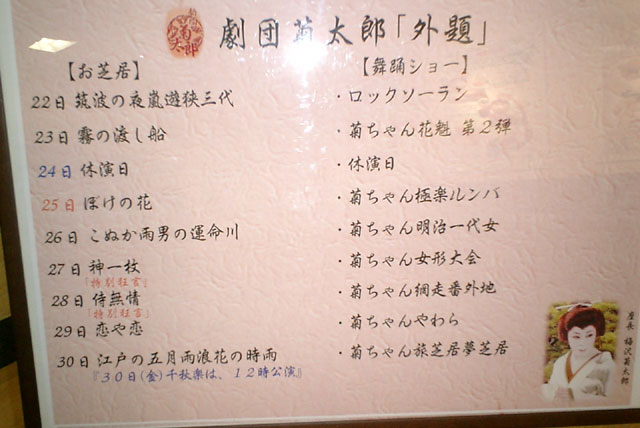 劇団菊太郎「外題」
【お芝居】
22日 筑波の夜嵐遊狭三代
23日 霧の渡し船
24日 休演日
25日 ぼけの花
26日 こぬか雨男の運命川
27日 神一枚
「特別狂言」
28日 侍無情
「特別狂言」
29日 恋や恋
30日 江戸の五月雨浪花の時雨
『30日(金)千秋楽は、12時公演』
【舞踊ショー】
・ロックソーラン
・菊ちゃん花魁 第2弾
・休演日
・菊ちゃん極楽ルンバ
・菊ちゃん明治一代女
・菊ちゃん女形大会
・菊ちゃん網走番外地
・菊ちゃんやわら
・菊ちゃん旅芝居夢芝居
座長 梅沢菊太郎